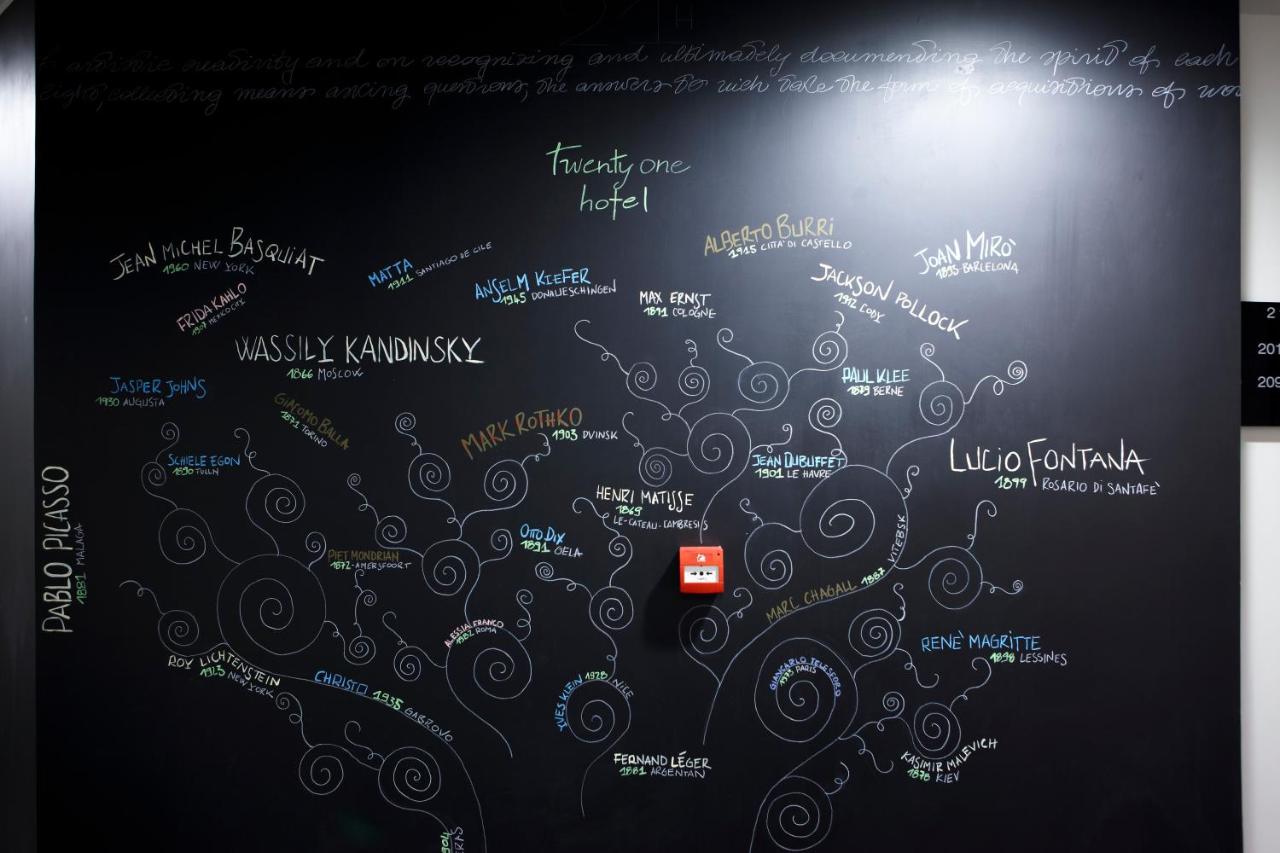 21TH
artistic creativity and on recognizing and ultimately documenting the spirit of each
collecting means asking questions, the answers to wich take the form of acquisitions of wor
Twenty one
hotel
JEAN MICHEL BASQUIAT
1960 NEW YORK
MATTA
1911 SANTIAGO DE CILE
ALBERTO BURRI
1915 CITTA' DI CASTELLO
JOAN MIRÒ
1893 BARCELONA
FRIDA KAHLO
1907 MEXICO CITY
ANSELM KIEFER
1945 DONAUESCHINGEN
MAX ERNST
1891 COLOGNE
JACKSON POLLOCK
1912 CODY
WASSILY KANDINSKY
1866 MOSCOW
2
201
209
JASPER JOHNS
1930 AUGUSTA
GIACOMO BALLA
1871 TORINO
PAUL KLEE
1879 BERNE
MARK ROTHKO
1903 DVINSK
SCHIELE EGON
1890 TULLN
JEAN DUBUFFET
1901 LE HAVRE
LUCIO FONTANA
1899 ROSARIO DI SANTAFE'
PABLO PICASSO
1881 MALAGA
HENRI MATISSE
1869
LE-CATEAU-CAMBRESIS
OTTO DIX
1891 GELA
PIET MONDRIAN
1872-AMERSFOORT
MARC CHAGALL 1887 VITEBSK
ALESSIA FRANCO
1982 ROMA
RENE' MAGRITTE
1898 LESSINES
ROY LICHTENSTEIN
1923 NEW YORK
CHRISTO 1935 GABROVO
YVES KLEIN 1928 NICE
GIANCARLO TELESFORO
1973 PARIS
FERNAND LÉGER
1881 ARGENTAN
KASIMIR MALEVICH
1878 KIEV
1904